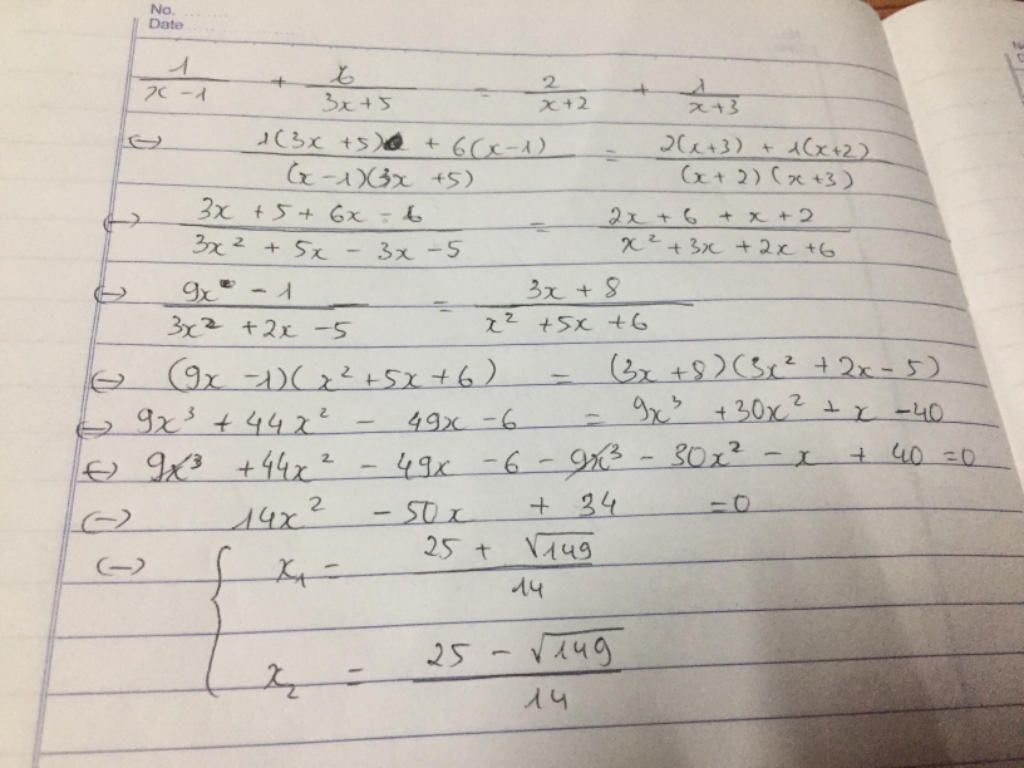 No.
Date
1/(x-1) + 6/(3x+5) = 2/(x+2) + 1/(x+3)
(-) (1(3x+5) + 6(x-1))/((x-1)(3x+5)) = (2(x+3) + 1(x+2))/((x+2)(x+3))
(-) (3x+5+6x-6)/(3x²+5x-3x-5) = (2x+6+x+2)/(x²+3x+2x+6)
(-) (9x-1)/(3x²+2x-5) = (3x+8)/(x²+5x+6)
(-) (9x-1)(x²+5x+6) = (3x+8)(3x²+2x-5)
(-) 9x³+44x²-49x-6 = 9x³+30x²+x-40
(-) 9x³+44x²-49x-6-9x³-30x²-x+40=0
(-) 14x²-50x+34=0
(-) { x₁ = (25+√149)/14
x₂ = (25-√149)/14